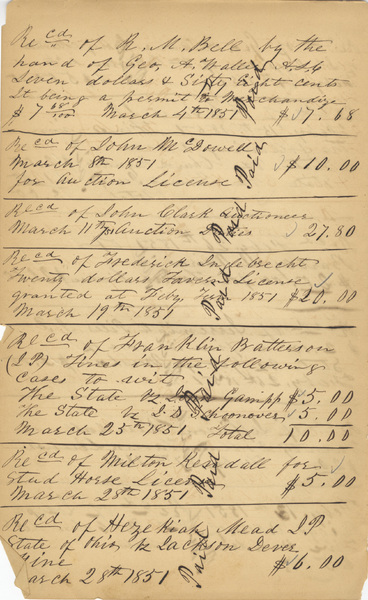 Recd of R. M. Bell by the
hand of Geo. A. Waller
Seven dollars & Sixty Eight cents
It being a permit to Merchandize
$7 68/100 March 4th 1851 $7.68
Paid
Recd of John McDowell
March 8th 1851 $10.00
for Auction License
Paid
Recd of John Clark Auctioneer
March 11th Auction Duties $27.80
Paid
Recd of Frederick Inderbrecht
Twenty dollars Tavern License
granted at Feby Term 1851 $20.00
March 19th 1851
Paid
Recd of Franklin Batterson
(J P) Fines in the following
cases to wit
The State vs Gumpp $5.00
The State vs J. D. Schoonover 5.00
March 25th 1851 Total 10.00
Paid
Recd of Milton Kendall for
Stud Horse License $5.00
March 28th 1851
Paid
Recd of Hezekiah Mead J P
State of Ohio vs Jackson Dever
Fine $6.00
arch 28th 1851
Paid